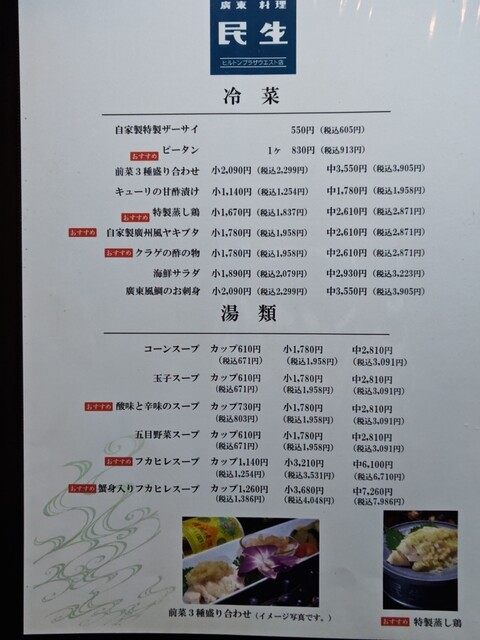 廣東 料理
民生
ヒルトンプラザウエスト店
冷菜
自家製特製ザーサイ 550円（税込605円）
おすすめ ピータン 1ヶ 830円（税込913円）
前菜３種盛り合わせ 小2,090円（税込2,299円） 中3,550円（税込3,905円）
キューリの甘酢漬け 小1,140円（税込1,254円） 中1,780円（税込1,958円）
おすすめ 特製蒸し鶏 小1,670円（税込1,837円） 中2,610円（税込2,871円）
おすすめ 自家製廣州風ヤキブタ 小1,780円（税込1,958円） 中2,610円（税込2,871円）
おすすめ クラゲの酢の物 小1,780円（税込1,958円） 中2,610円（税込2,871円）
海鮮サラダ 小1,890円（税込2,079円） 中2,930円（税込3,223円）
廣東風鯛のお刺身 小2,090円（税込2,299円） 中3,550円（税込3,905円）
湯類
コーンスープ カップ610円 小1,780円 中2,810円
（税込671円） （税込1,958円） （税込3,091円）
玉子スープ カップ610円 小1,780円 中2,810円
（税込671円） （税込1,958円） （税込3,091円）
おすすめ 酸味と辛味のスープ カップ730円 小1,780円 中2,810円
（税込803円） （税込1,958円） （税込3,091円）
五目野菜スープ カップ610円 小1,780円 中2,810円
（税込671円） （税込1,958円） （税込3,091円）
おすすめ フカヒレスープ カップ1,140円 小3,210円 中6,100円
（税込1,254円） （税込3,531円） （税込6,710円）
おすすめ 蟹身入りフカヒレスープ カップ1,260円 小3,680円 中7,260円
（税込1,386円） （税込4,048円） （税込7,986円）
前菜３種盛り合わせ（イメージ写真です。）
おすすめ 特製蒸し鶏